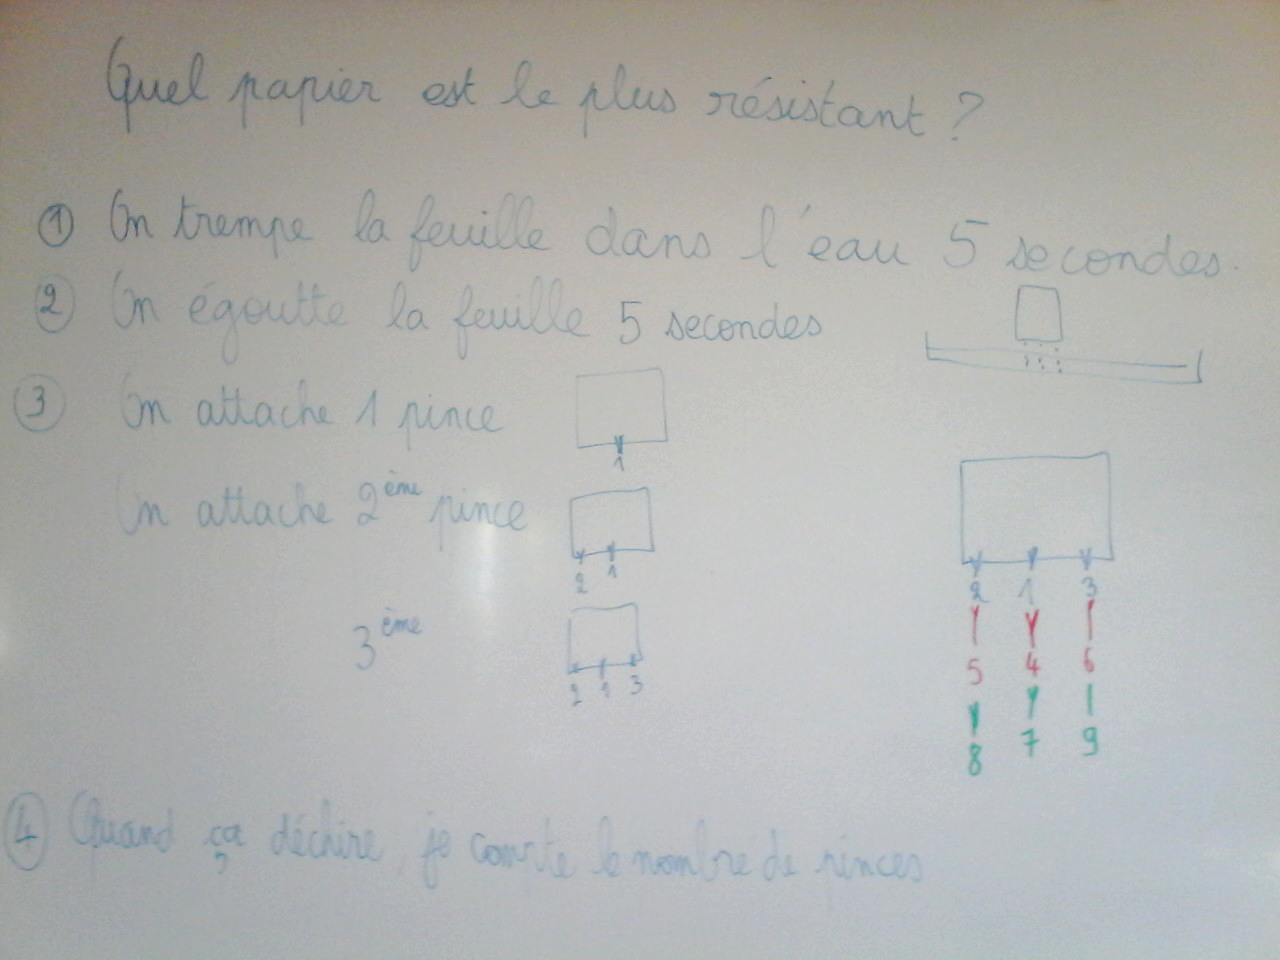 Quel papier est le plus résistant ?
① On trempe la feuille dans l'eau 5 secondes.
② On égoutte la feuille 5 secondes
③ On attache 1 pince
1
On attache 2ème pince
2 1
3ème
2 1 3
2 1 3
5 4 6
8 7 9
④ Quand ça déchire, je compte le nombre de pinces